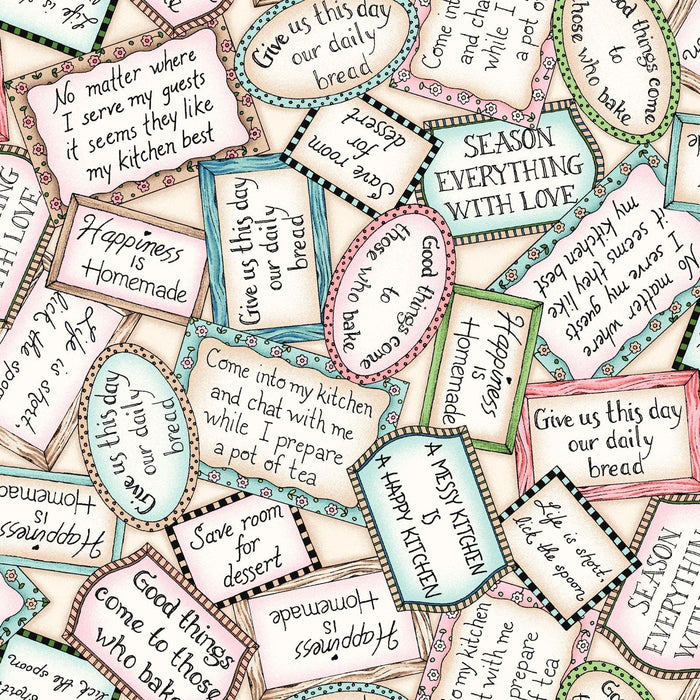 Life is short.
Give us this day
our daily
bread
Come into
and chat
while I
a pot of
Good things come
to
those who bake
No matter where
I serve my guests
it seems they like
my kitchen best
Save room
for
dessert
SEASON
EVERYTHING
WITH LOVE
Happiness
is
Homemade
Give us this day
our daily
bread
Good things come
to
those who bake
No matter where
I serve my guests
it seems they like
my kitchen best
WITH LOVE
Life is short.
lick the spoon
Happiness
is
Homemade
Come into my kitchen
and chat with me
while I prepare
a pot of tea
Give us this day
our daily
bread
Give us this day
our daily
bread
A MESSY KITCHEN
IS
A HAPPY KITCHEN
Happiness
is
Homemade
Save room
for
dessert
Life is short.
lick the spoon
SEASON
EVERYTHING
WITH LOVE
Good things
come to those
who bake
Happiness
is
Homemade
my kitchen
with me
prepare
of tea
lick the spoon